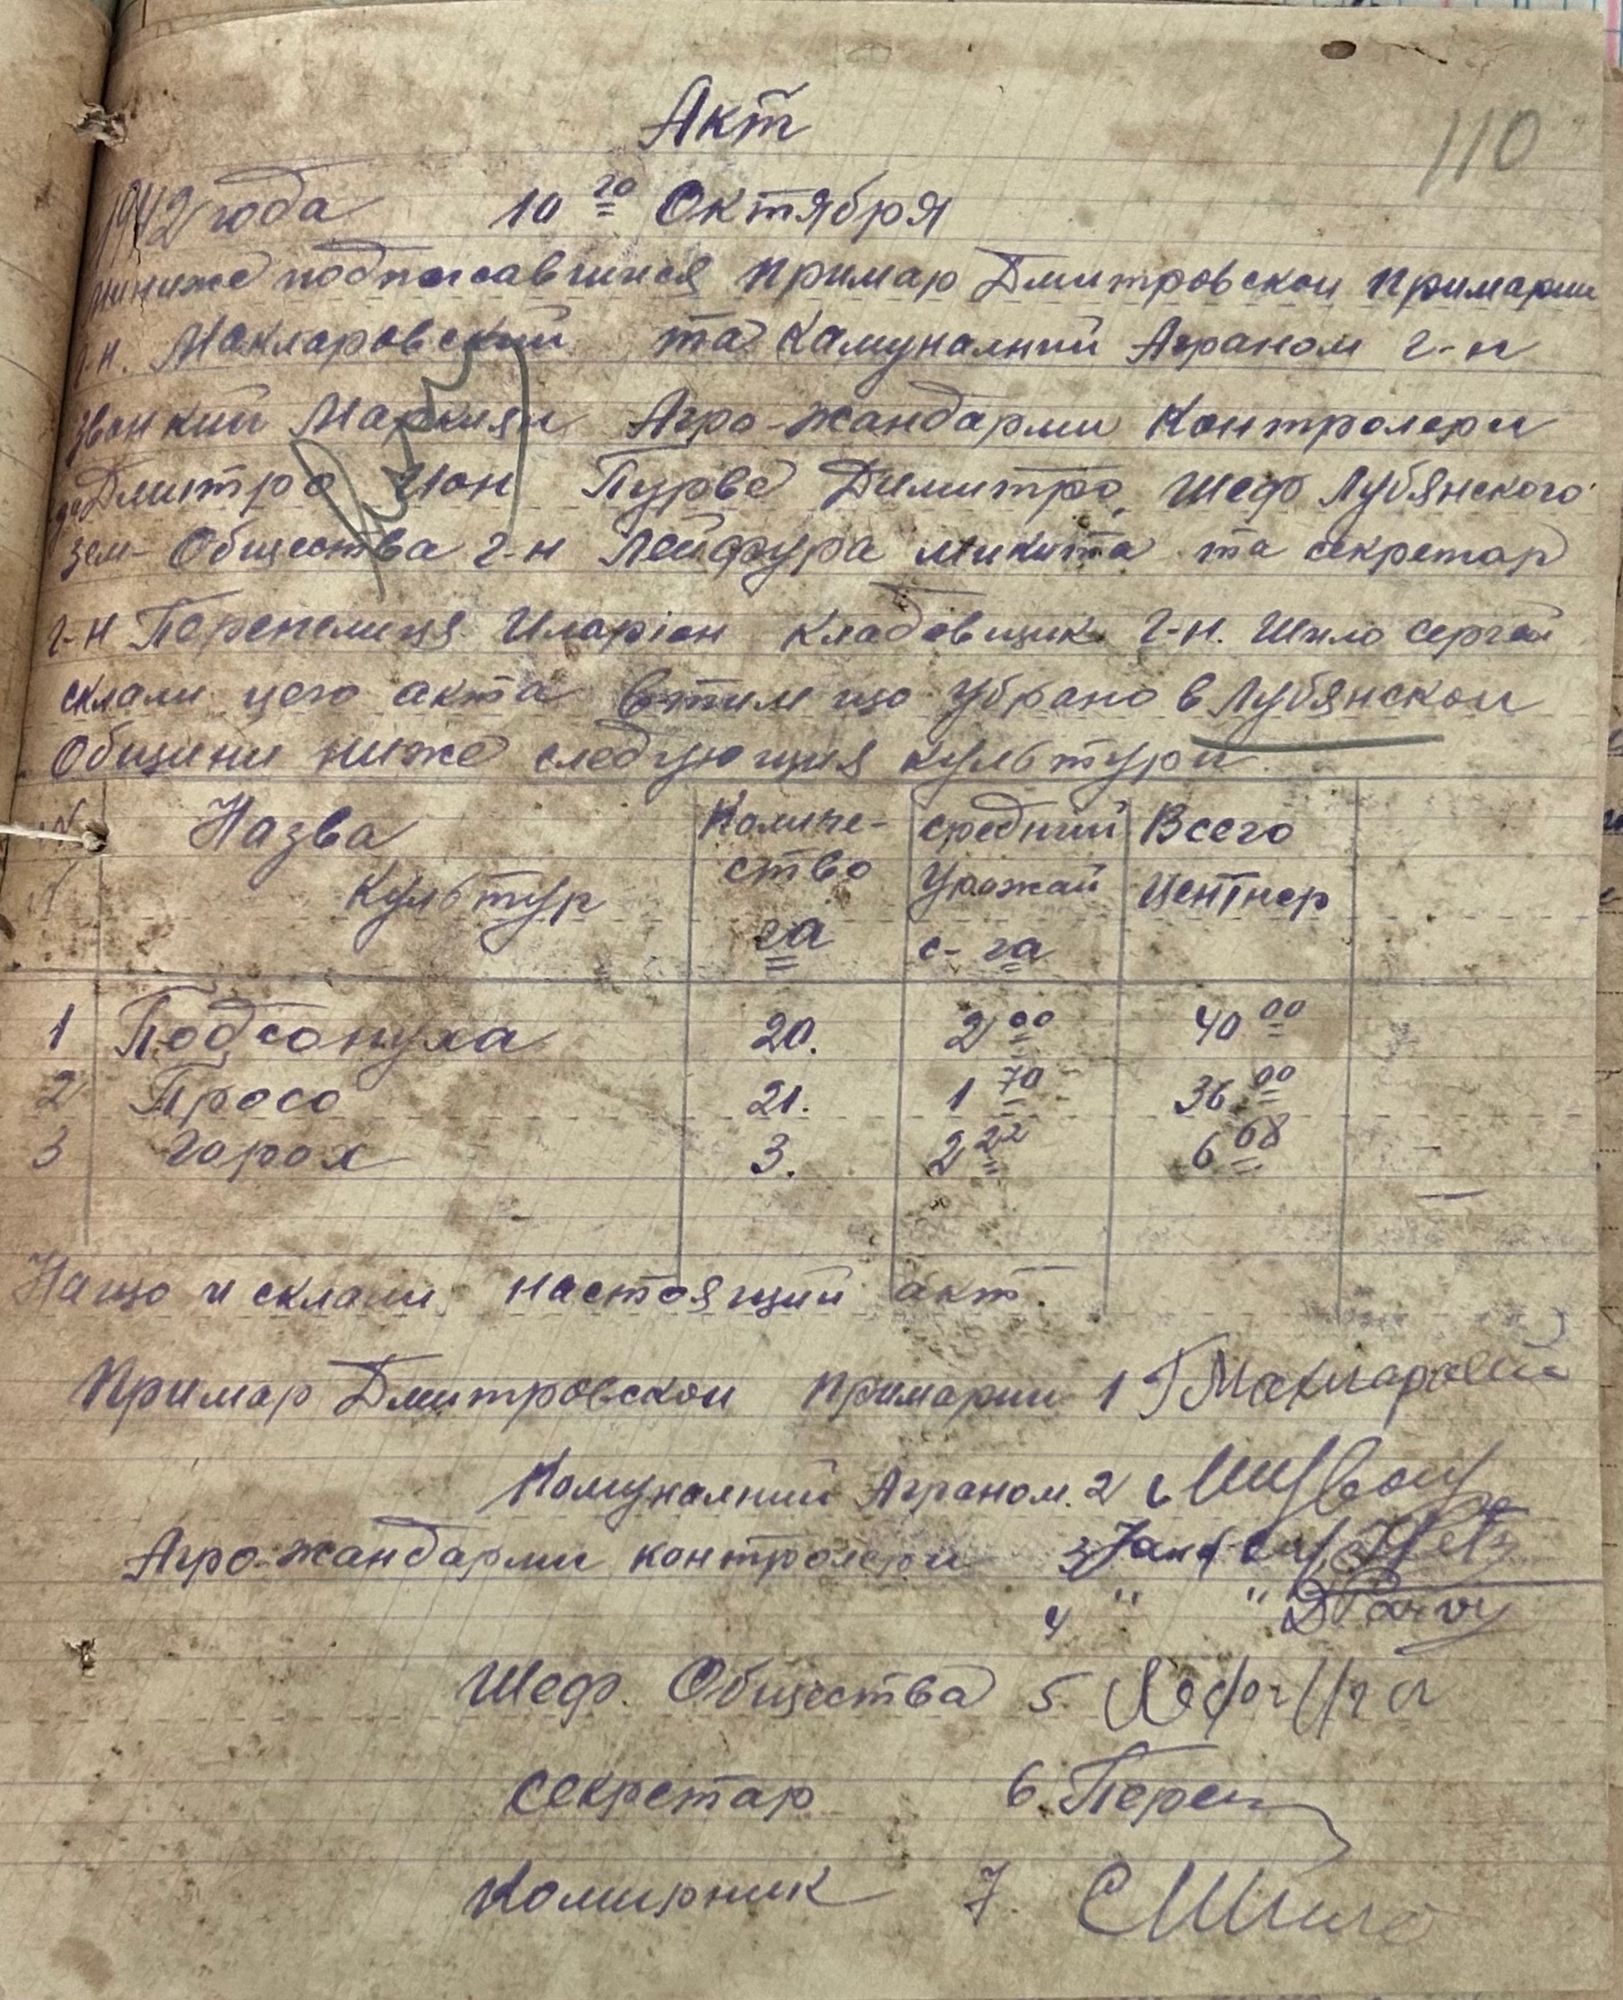 110
Акт
1942 года 10го Октября
миниже подписавшиися Примар Дмитровскои Примарии
г-н. Макларовский та Камуналний Аграном г-н
Звонкий Маркиян Агро-жандарми Контролери
Дмитро Ион Пурве Димитро, Шеф Лубянского
зем- Общества г-н Лейфура микита та секретар
г-н Перепелиця Иларіон кладовщик г-н. Шило Сергей
склали цего акта втим що убрано в Лубянскои
Общини ниже следующия культури.
Назва Культур | Количе-ство га | средний Урожай с-га | Всего Центнер
1 Подсонуха 20. 2 00 40 00
2 Просо 21. 1 70 36 00
3 Горох 3. 2 22 6 68
На що и склали настоящий акт.
Примар Дмитровскои Примарии 1 Макларовский
Комуналний Аграном. 2
Агро-жандарми контролери 3
4 " "
Шеф. Общества 5.
секретар 6. Переп
Комирник 7. СШило